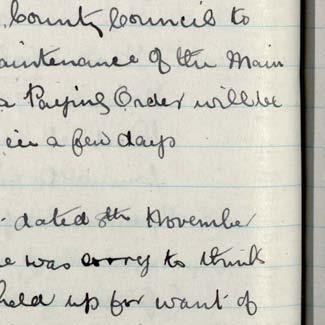 County Councils to
aintenance of the Main
a Paying Order will be
in a few days
dated 8th November
e was sorry to think
held up for want of